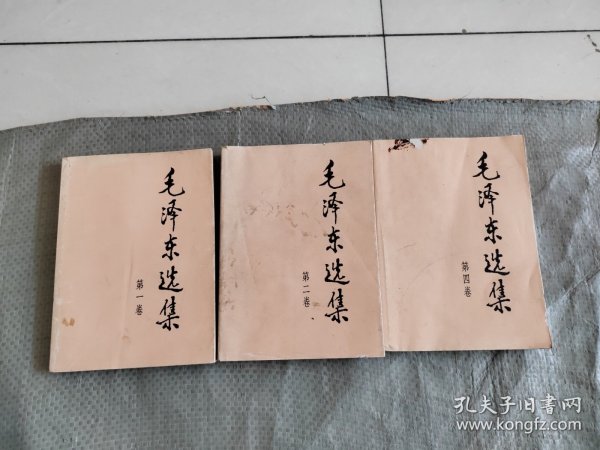 毛泽东选集
第一卷
毛泽东选集
第二卷
毛泽东选集
第四卷
孔夫子旧书网
www.kongfz.com